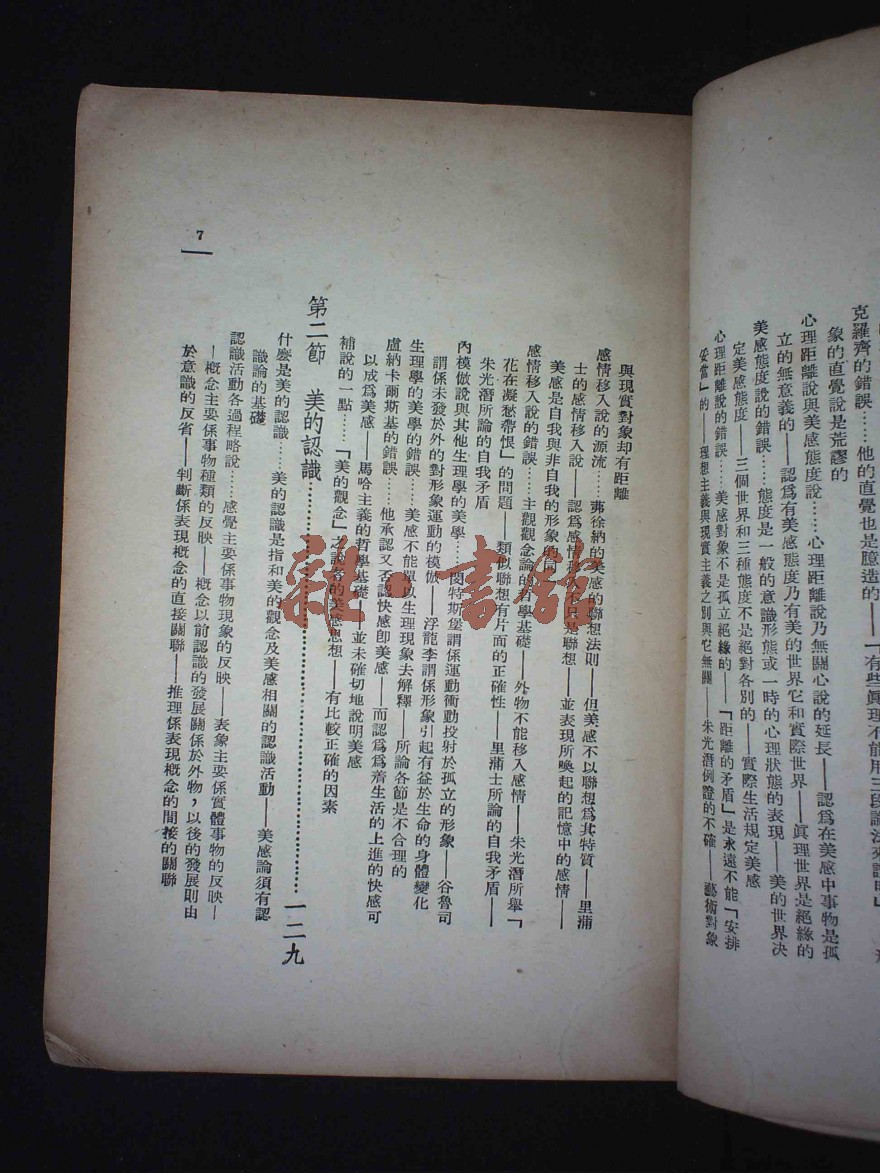 克羅齊的錯誤……他的直覺也是臆造的——「有些眞理不能用三段論法來證明」
象的直覺說是荒謬的
心理距離說與美感態度說……心理距離說乃無關心說的延長——認爲在美感中事物是孤
立的無意義的——認爲有美感態度乃有美的世界它和實際世界——眞理世界是絕緣的
美感態度說的錯誤……態度是一般的意識形態或一時的心理狀態的表現——美的世界決
定美感態度——三個世界和三種態度不是絕對各別的——實際生活規定美感
心理距離說的錯誤……美感對象不是孤立絕緣的——「距離的矛盾」是永遠不能「安排
妥當」的——理想主義與現實主義之別與它無關——朱光潛例證的不確——藝術對象
與現實對象却有距離
感情移入說的源流……茀徐納的美感的聯想法則——但美感不以聯想爲其特質——里蒲
士的感情移入說——認爲感情移入不只是聯想——並表現所喚起的記憶中的感情——
美感是自我與非自我的形象的同
感情移入說的錯誤……主觀觀念論的哲學基礎——外物不能移入感情——朱光潛所舉「
花在凝愁帶恨」的問題——類似聯想有片面的正確性——里蒲士所論的自我矛盾——
朱光潛所論的自我矛盾
內模倣說與其他生理學的美學……閔特斯堡謂係運動衝動投射於孤立的形象——谷魯司
謂係未發於外的對形象運動的模倣——浮龍李謂係形象引起有益於生命的身體變化
生理學的美學的錯誤……美感不能單以生理現象去解釋——所論各節是不合理的
盧納卡爾斯基的錯誤……他承認又否認快感卽美感——而認爲爲着生活的上進的快感可
以成爲美感——馬哈主義的哲學基礎——並未確切地說明美感
補說的一點……「美的觀念」之說者的美感思想——有比較正確的因素
第二節　美的認識……一二九
什麼是美的認識……美的認識是指和美的觀念及美感相關的認識活動——美感論須有認
識論的基礎
認識活動各過程略說……感覺主要係事物現象的反映——表象主要係實體事物的反映—
—概念主要係事物種類的反映——概念以前認識的發展關係於外物，以後的發展則由
於意識的反省——判斷係表現概念的直接關聯——推理係表現概念的間接的關聯
7